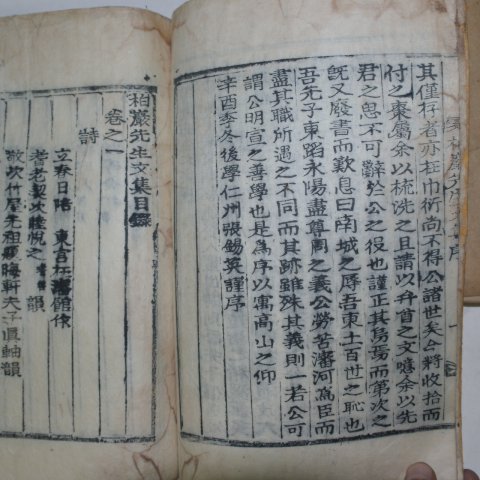 其僅存者亦在巾衍尚不得公諸世矣今將收拾而
付之棗屬余以梳洗之且請以弁首之文噫余以先
君之思不可辭於公之役也謹正其烏焉而第次之
旣又廢書而歎息曰南城之辱吾東土百世之恥也
吾先子東蹈永陽盡尊周之義公勞苦瀋河爲臣而
盡其職所遇之不同而其跡雖殊其義則一若公可
謂公明宣之善學也是爲序以寓高山之仰
辛酉季冬後學仁州張錫英謹序
柏巖先生文集目錄
卷之一
詩
立春日路 東宮在瀋館作
耆老契次睦悅之 韻
敬次竹屋先祖 晦軒夫子直軸韻